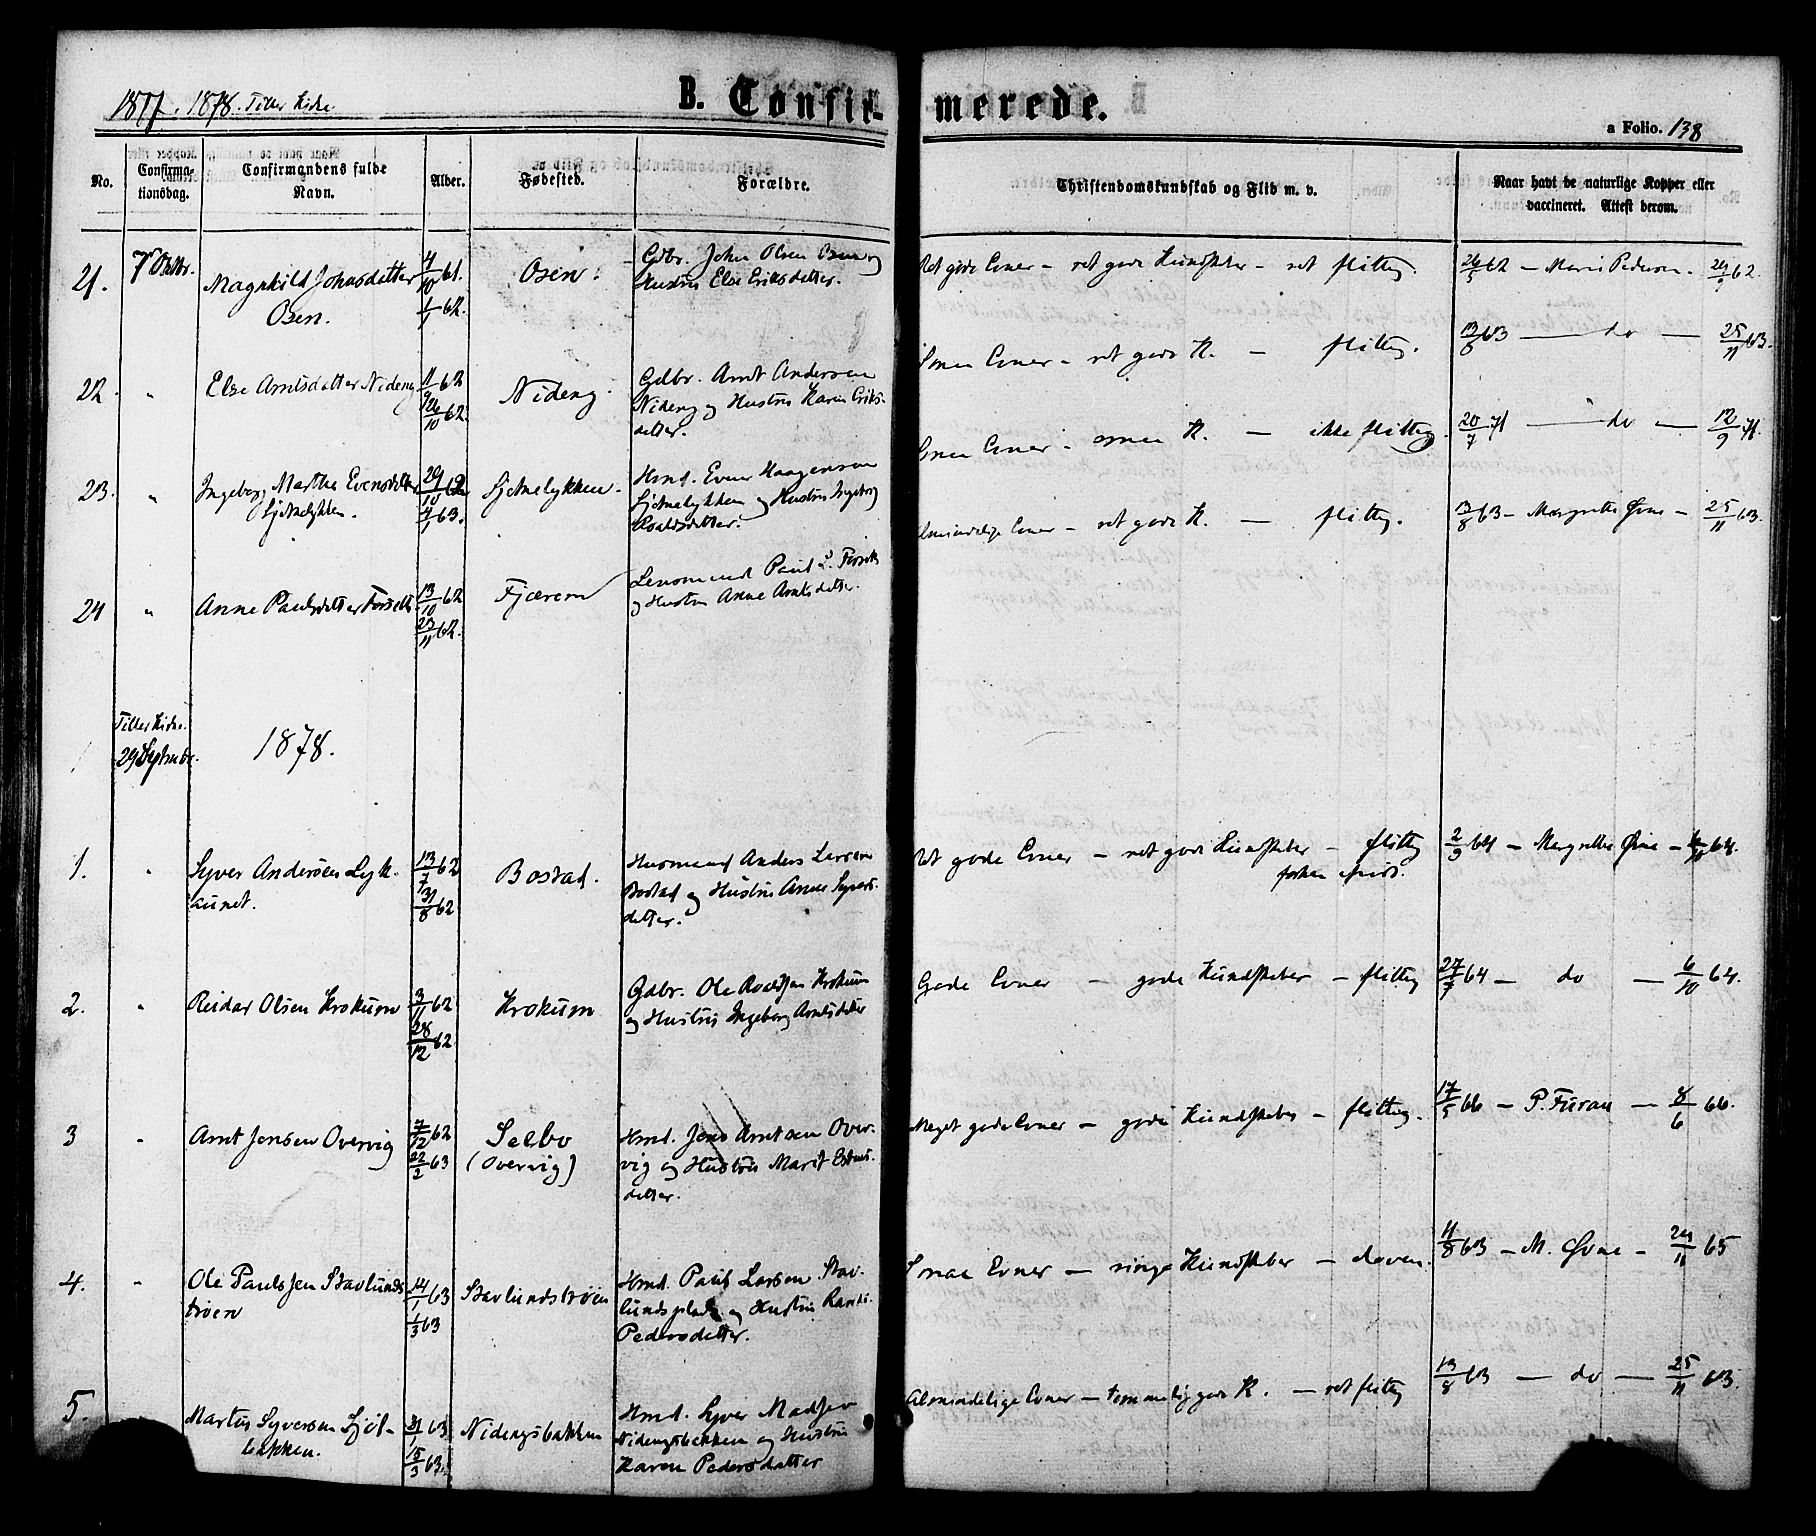 1877. 1878. Tiller Kirke.
B. Confir-
merede.
a Folio. 138
No.
Confirma-
tionsdag.
Confirmandens fulde
Navn.
Alder.
Fødested.
Forældre.
Christendomskundskab og Flid m. v.
Naar havt de naturlige Kopper eller
vaccineret. Attest derom.
21.
7 Octbr.
Magnhild Johnsdatter
Osen.
4/10 61.
1/1 62.
Osen.
Gdbr. John Olsen Osen og
Hustru Else Eriksdatter.
Ret gode Evner - ret gode Kundskaber - ret flittig.
26/5 62 - Marie Pedersen. 29/9 62.
22.
"
Else Arntsdatter Nideng
11/9 62
26/10 62.
Nideng.
Gdbr. Arnt Andersen
Nideng og Hustru Karen Eriks-
datter.
Smaa Evner - ret gode K. - flittig.
13/8 63 - do - 25/11 63.
23.
"
Ingeborg Martha Evensdatter
Sjetnelykken.
29/10 62
4/1 63.
Sjetnelykken.
Hmd. Even Haagensen
Sjetnelykken og Hustru Ingeborg
Roaldsdatter.
Smaa Evner - smaa K. - ikke flittig.
20/7 71 - do - 12/9 71.
24
"
Anne Paulsdatter Forseth
13/10 62
23/11 62.
Fjærem
Lensmand Paul Forseth
og Hustru Anne Arntsdatter
Almindelige Evner - ret gode K. - flittig.
13/8 63 - Margrethe Øvne - 25/11 63.
Tiller Kirke.
29 Septembr.
1878.
1.
"
Syver Andersen Lyk-
aunet.
13/7 62
31/8 62
Bostad.
Husmand Anders Larsen
Bostad og Hustru Anne Syvers-
datter.
Ret gode Evner - ret gode Kundskaber - flittig
2/9 64 - Margrethe Øvne - 6/10 64.
2.
"
Reidar Olsen Krokum
3/11 62
28/12 62
Krokum
Gdbr. Ole Roaldsen Krokum
og Hustru Ingeborg Arntsdatter
Gode Evner - gode Kundskaber - flittig
27/7 64 - do - 6/10 64.
3
"
Arnt Jensen Overvig
7/12 62
22/2 63
Selbo
(Overvig)
Hmd. Jens Arntsen Over-
vig og Hustru Marit Estens-
datter.
Meget gode Evner - gode Kundskaber - flittig.
17/5 66 - P. Furan - 8/6 66.
4.
"
Ole Paulssen Stavlunds
trøen
14/1 63
1/3 63
Stavlundstrøen
Hmd. Paul Larsen Stav-
lundsplads og Hustru Randi
Pedersdatter.
Smaa Evner - ringe Kundskaber - doven.
11/8 63 - M. Øvne - 24/11 65
5.
Martin Syversen Sjöl-
bakken.
31/1 63
15/3 63.
Nidengsbakken
Hmd. Syver Madsen
Nidengsbakken og Hustru
Karen Pedersdatter
Almindelige Evner - temmelig gode K. - ret flittig
13/8 63 - do - 25/11 63.